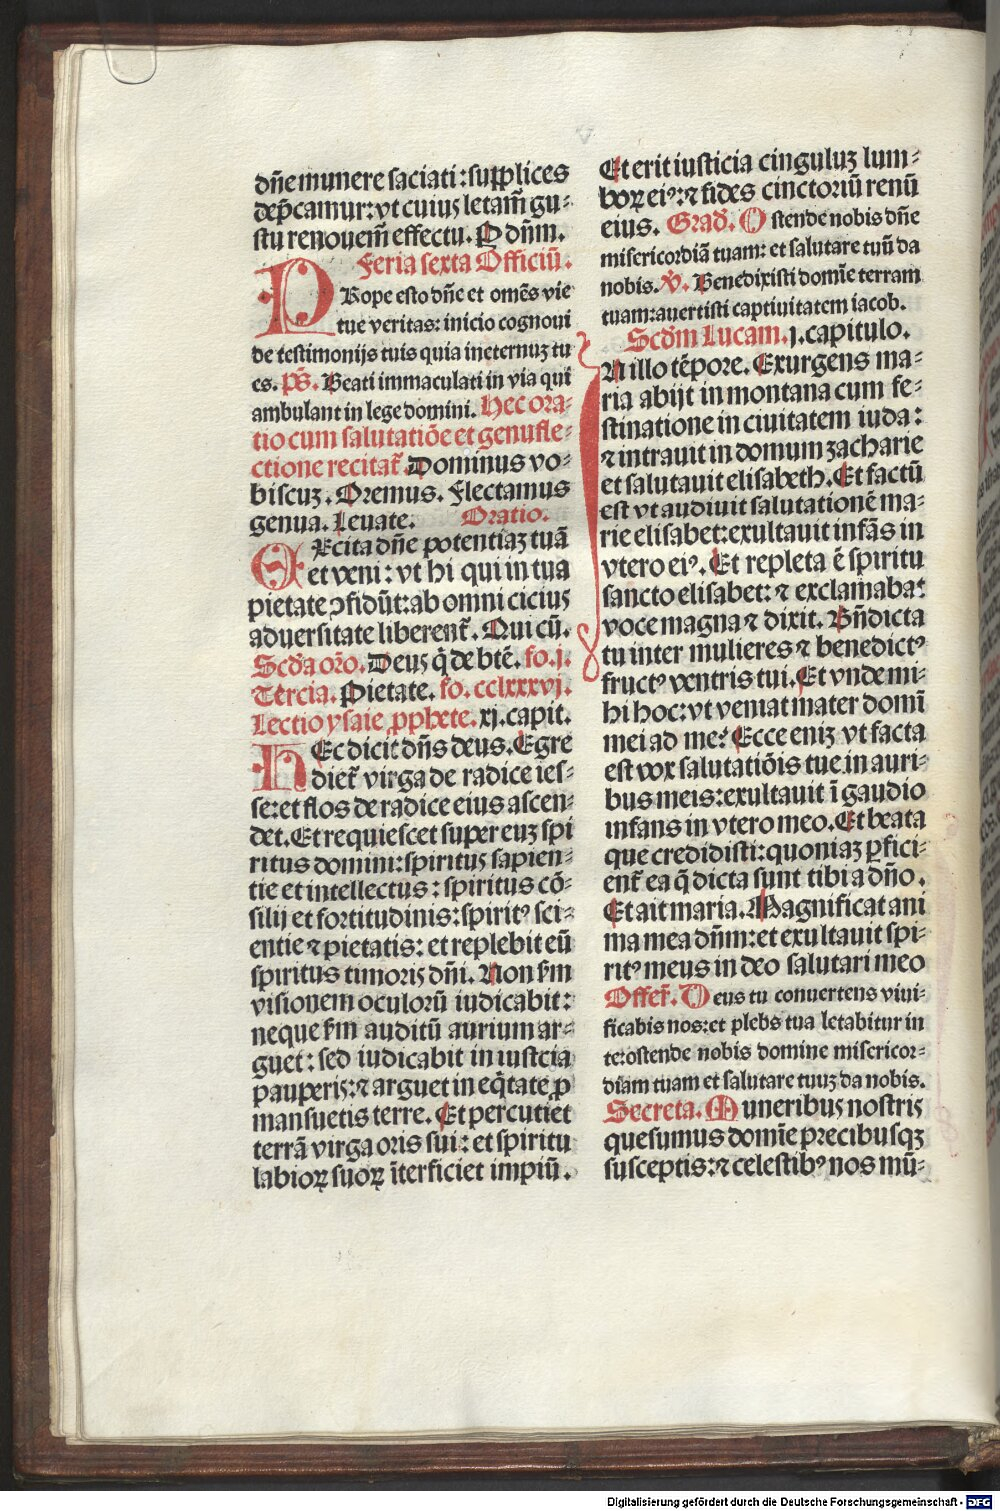 dñe munere saciati: supplices
dep̃camur: vt cuius letam̃ gu⸗
stu renouem̃ effectu. P dñm.
Feria sexta Officiũ.
PRope esto dñe et om̃es vie
tue veritas: inicio cognoui
de testimonijs tuis quia ineternuz tu
es. p̃s. Beati immaculati in via qui
ambulant in lege domini. Hec ora⸗
tio cum salutatiõe et genufle⸗
ctione recitat̃. Dominus vo⸗
biscuz. Oremus. Flectamus
genua. Leuate. Oratio.
EXcita dñe potentiaz tuã
et veni: vt hi qui in tua
pietate ꝯfidũt: ab omni cicius
aduersitate liberent̃. Qui cũ.
Scd̃a or̃o. Deus q̃ de btẽ. fo. j.
Tercia. Pietate. fo. cclxxxvj.
Lectio ysaie ꝓphete. xj. capit.
HEc dicit dñs deus. Egre
diet̃ virga de radice ies⸗
se: et flos de radice eius ascen⸗
det. Et requiescet super euz spi
ritus domini: spiritus sapien⸗
tie et intellectus: spiritus cõ⸗
silij et fortitudinis: spiritꝰ sci⸗
entie ⁊ pietatis: et replebit eũ
spiritus timoris dñi. Non s̃m
visionem oculorũ iudicabit:
neque s̃m auditũ aurium ar⸗
guet: sed iudicabit in iusticia
pauperis: ⁊ arguet in eq̃tate ꝓ
mansuetis terre. Et percutiet
terrã virga oris sui: et spiritu
labioꝝ suoꝝ ĩterficiet impiũ.
Et erit iusticia cinguluz lum⸗
boꝝ eiꝰ: ⁊ fides cinctoriũ renũ
eius. Grad̃. Ostende nobis dñe
misericordiã tuam: et salutare tuũ da
nobis. V̾. Benedixisti domĩe terram
tuam: auertisti captiuitatem iacob.
Scd̃m Lucam. j. capitulo.
IN illo tẽpore. Exurgens ma⸗
ria abijt in montana cum fe⸗
stinatione in ciuitatem iuda:
⁊ intrauit in domum zacharie
et salutauit elisabeth. Et factũ
est vt audiuit salutationẽ ma⸗
rie elisabet: exultauit infãs in
vtero eiꝰ. Et repleta ẽ spiritu
sancto elisabet: ⁊ exclamabat
voce magna ⁊ dixit. Bñdicta
tu inter mulieres ⁊ benedictꝰ
fructꝰ ventris tui. Et vnde mi⸗
hi hoc: vt veniat mater domĩ
mei ad me? Ecce eniz vt facta
est vox salutatiõis tue in auri⸗
bus meis: exultauit ĩ gaudio
infans in vtero meo. Et beata
que credidisti: quoniaz ꝑfici⸗
ent̃ ea q̃ dicta sunt tibi a dño.
Et ait maria. Magnificat ani
ma mea dñm: et exultauit spi⸗
ritꝰ meus in deo salutari meo
Offer̃. Deus tu conuertens viui⸗
ficabis nos: et plebs tua letabitur in
te: ostende nobis domine misericor⸗
diam tuam et salutare tuuz da nobis.
Secreta. Muneribus nostris
quesumus domĩe precibusqꝫ
susceptis: ⁊ celestibꝰ nos mũ⸗
Digitalisierung gefördert durch die Deutsche Forschungsgemeinschaft - DFG